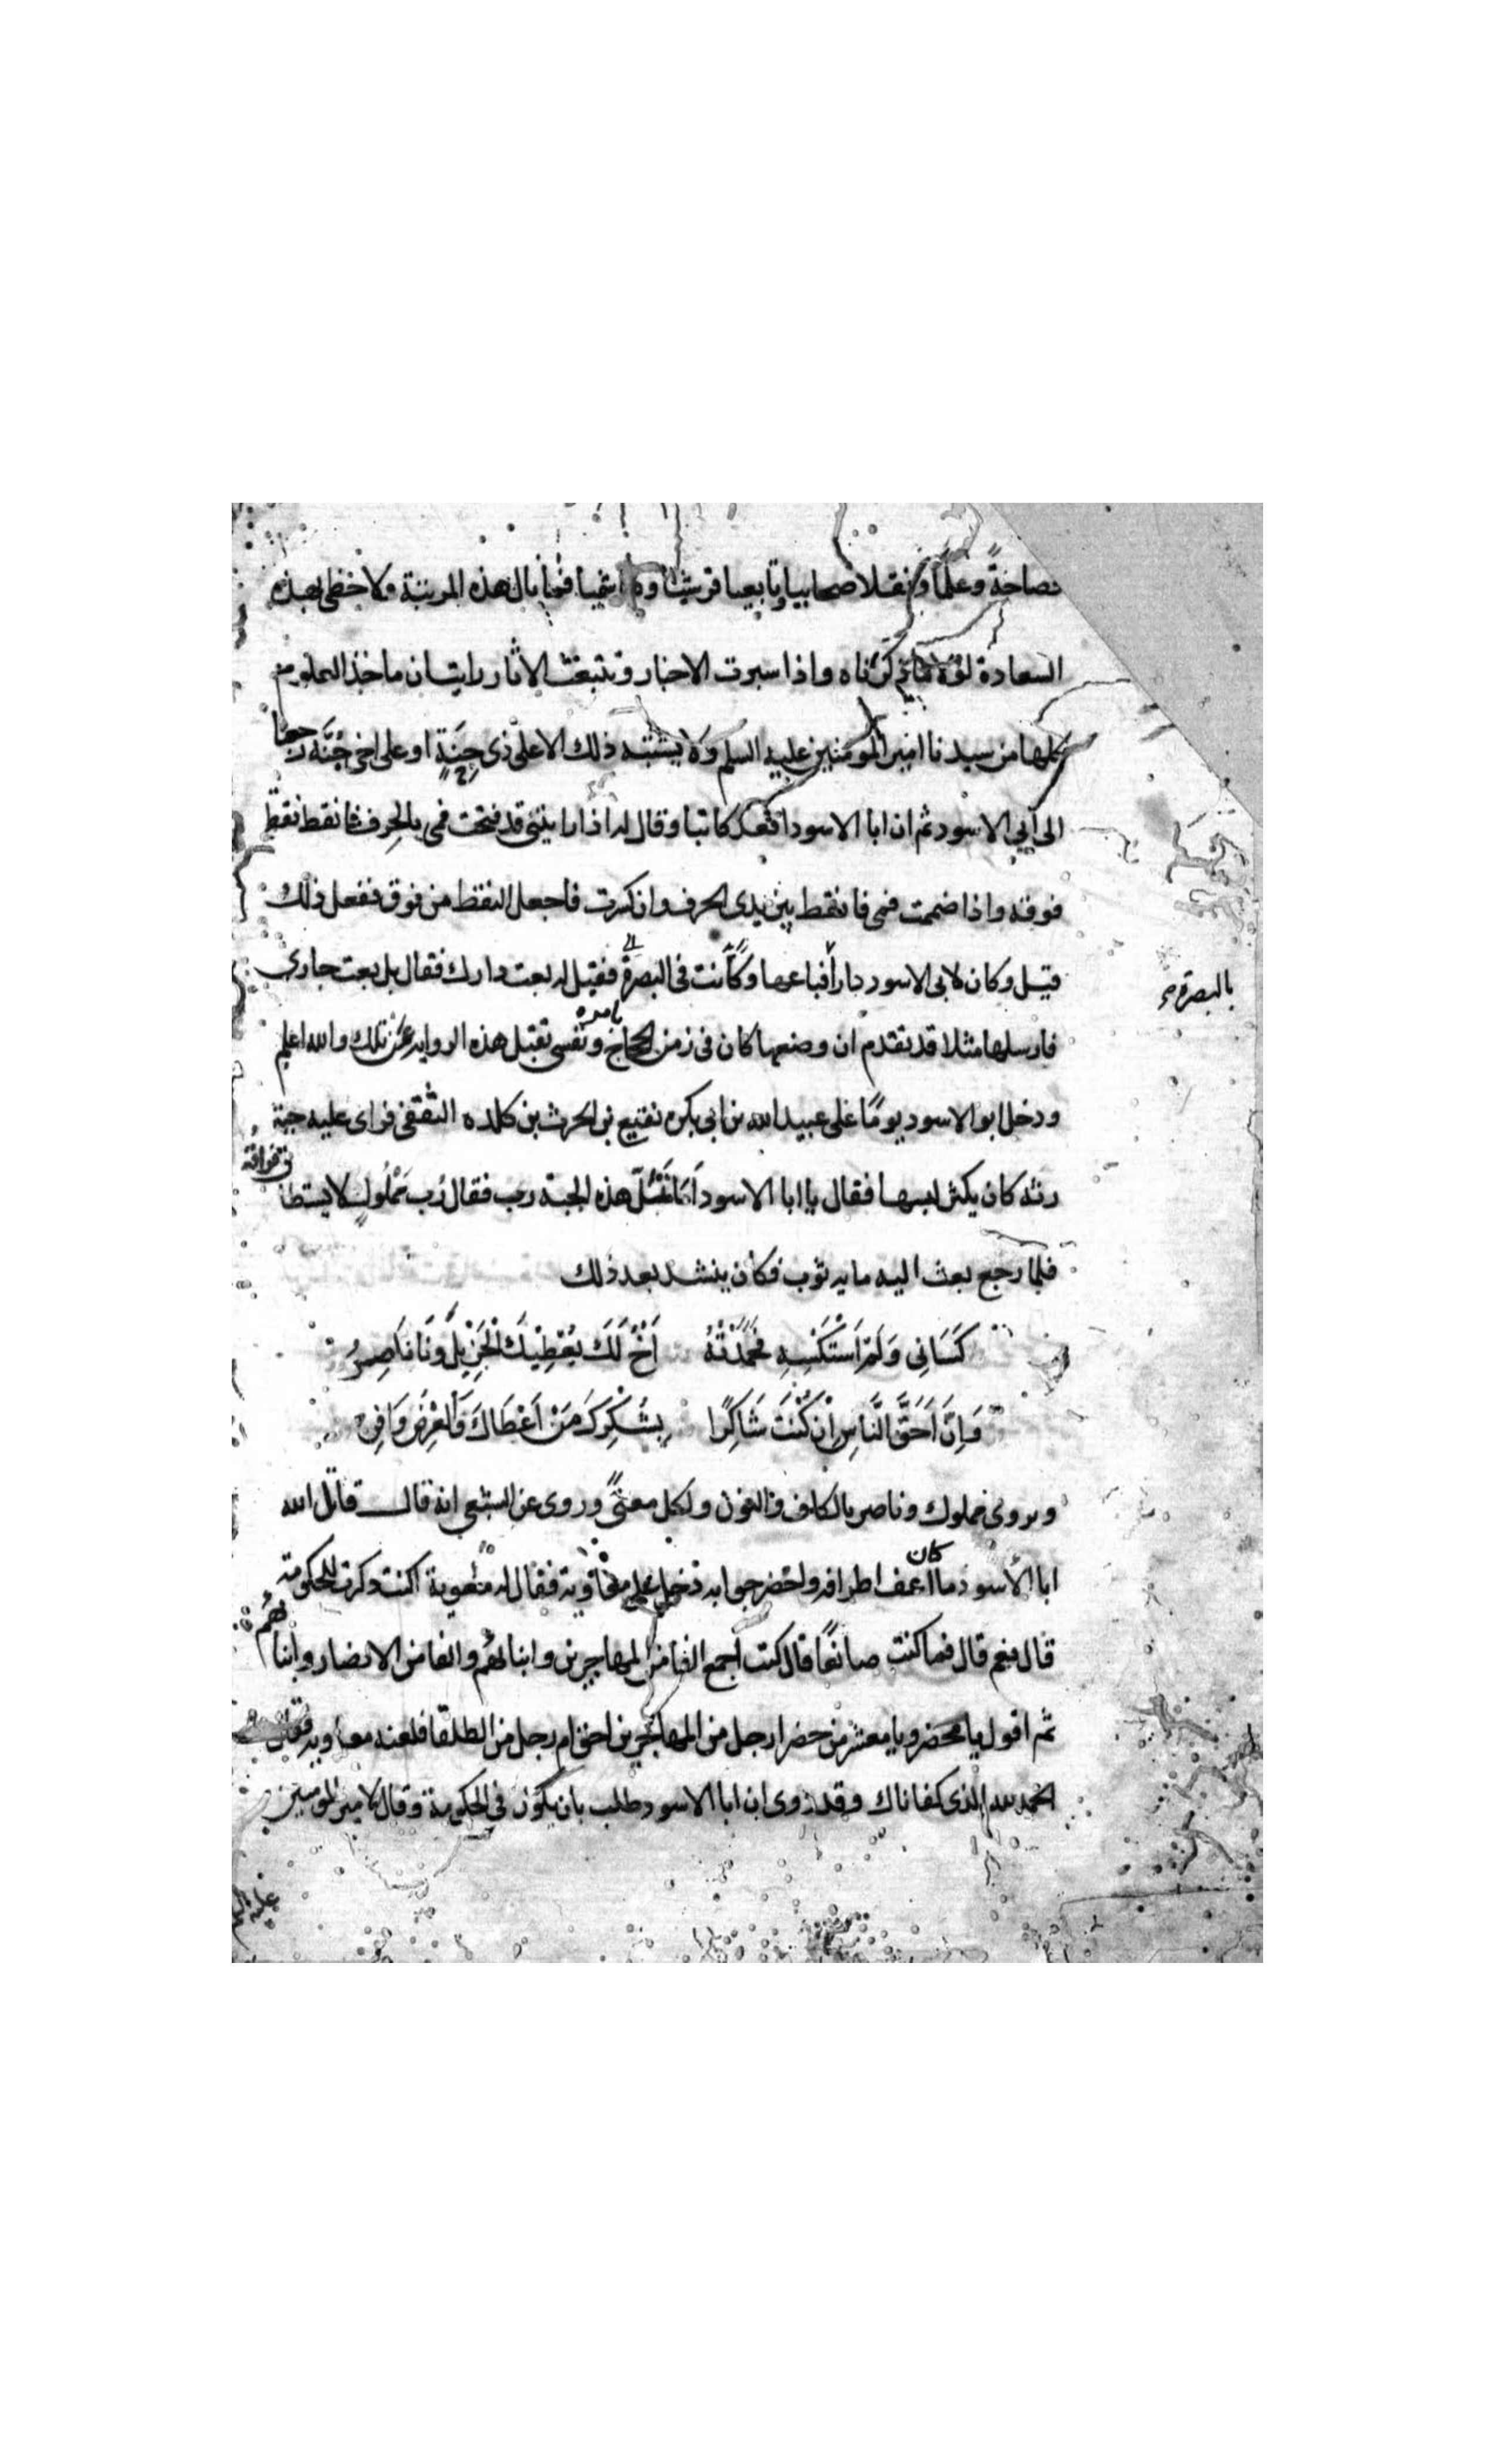 فصاحةً وعلمًا ونقلا صحابيا وتابعيا قرشيا وهاشميا فما بال هذه المرتبة ولا حظى بهذه
السعادة لولا ما ذكرناه واذا سبرت الاخبار وتتبعت الاثار رايت ان ماخذ العلوم
كلها من سيدنا امير المومنين عليه السلم ولا يشتبه ذلك الا على ذى جِنَةٍ او على اخى جُنَّه رجعنا
الى ابي الاسود ثم ان ابا الاسود اقعد كاتبا وقال له اذا رايتنى قد فتحت فمى بالحرف فانقط نقطة
فوقه واذا ضممت فمى فانقط بين يدى الحرف وان كسرت فاجعل النقط من فوق ففعل ذلك
قيل وكان لابى الاسود دارا فباعها وكانت فى البصرة فقيل له بعت دارك فقال بل بعت جارى
بالبصرة
فارسلها مثلا قد تقدم ان وضعها كان فى زمن الحجاج بامره ونفسى تقبل هذه الروايه عن تلك والله اعلم
ودخل ابو الاسود يومًا على عبيد الله بن ابى بكره نفيع بن الحرث بن كلده الثقفى فراى عليه جبة
رثه كان يكثر لبسها فقال يا ابا الاسود اما تمل هذه الجبة رب فقال رُب مَمْلُولٍ لا يستطا
ع فراقه
فلما رجع بعث اليه مايه ثوب فكان ينشد بعد ذلك
كَسَانِى وَلَمْ اَسْتَكْسِهِ فَحَمَدْتُهُ اَخٌ لَكَ يُعْطِيْكَ الْجَزِيْلَ وَنَاصِرُ
وَاِنَّ اَحَقَّ النَّاسِ اِنْ كُنْتَ شَاكِرًا بِشُكْرِكَ مَنْ اَعْطَاكَ وَالْعِرْضُ وَافِرُ
ويروى مملوك وناصر بالكاف والنون ولكل معنىً وروى عن الشعبي انه قال قاتل الله
ابا الأسود ما كان اعف اطرافه واحضر جوابه دخل على معاوية فقال له معوية اكنت ذكرت للحكومة
قال نعم قال فما كنت صانعًا قال كنت اجمع الفا من المهاجرين وابنائهم والفا من الانصار وابنا
ئهم
ثم اقول يا محضر ويا معشر من حضر ارجل من المهاجرين احق ام رجل من الطلقا فلعنه معاويه وقال
الحمد لله الذى كفاناك وقد روى ان ابا الاسود طلب بان يكون فى الحكومة وقال لامير المومنين
عليه السلم